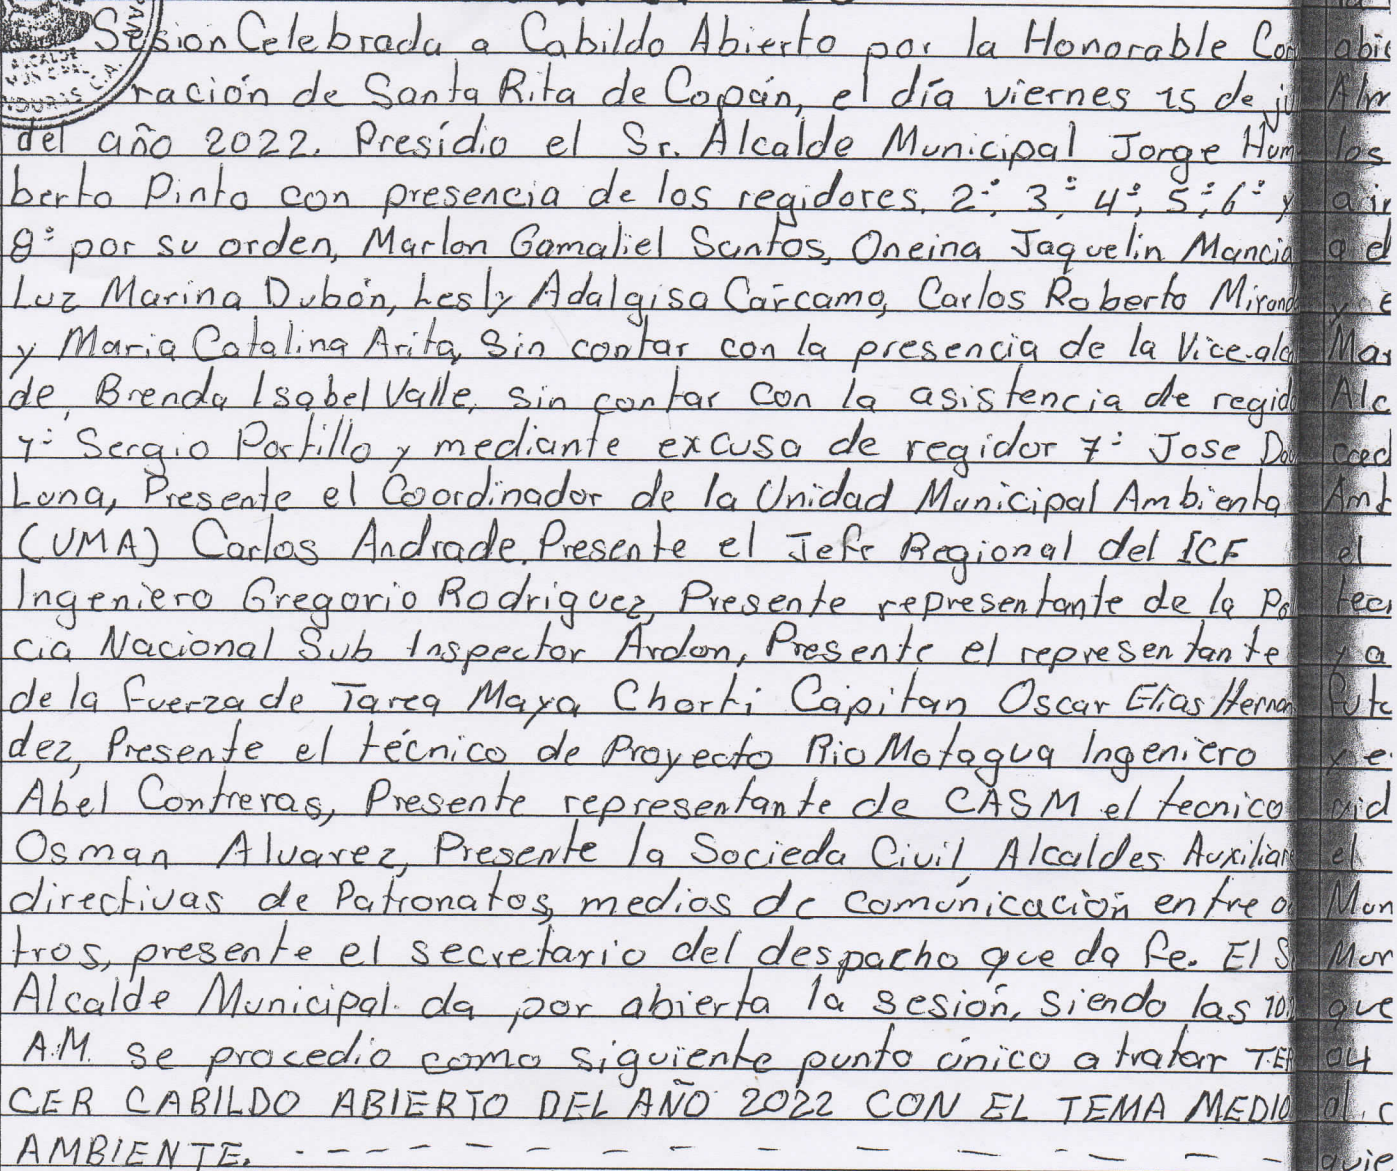 Sesion Celebrada a Cabildo Abierto por la Honorable Cor
ración de Santa Rita de Copán, el día viernes 15 de ju
del año 2022. Presídio el Sr. Alcalde Municipal Jorge Hum
berto Pinto con presencia de los regidores, 2º, 3º, 4º, 5º, 6º y
8º por su orden, Marlon Gamaliel Santos, Oneina Jaquelin Mancia
Luz Marina Dubón, Lesly Adalgisa Cárcamo, Carlos Roberto Mirand
y Maria Catalina Arita, Sin contar con la presencia de la Vice-alca
de, Brenda Isabel Valle, sin contar con la asistencia de regid
1º Sergio Portillo y mediante excusa de regidor 7º Jose Da
Luna, Presente el Coordinador de la Unidad Municipal Ambienta
(UMA) Carlos Andrade, Presente el Jefe Regional del ICF
Ingeniero Gregorio Rodriguez, Presente representante de la Po
cia Nacional Sub Inspector Ardon, Presente el representante
de la Fuerza de Tarea Maya Chorti Capitan Oscar Elias Hernan
dez, Presente el técnico de Proyecto Rio Motagua Ingeniero
Abel Contreras, Presente representante de CASM el tecnico
Osman Alvarez, Presente la Socieda Civil, Alcaldes Auxiliar
directivas de Patronatos, medios de comúnicación entre o
tros, presente el secretario del despacho que da fe. El S
Alcalde Municipal da por abierta la sesión, siendo las 10:
A.M. se procedio como siguiente punto único a tratar TER
CER CABILDO ABIERTO DEL AÑO 2022 CON EL TEMA MEDIO
AMBIENTE. - - - - - - - - - - - - - -